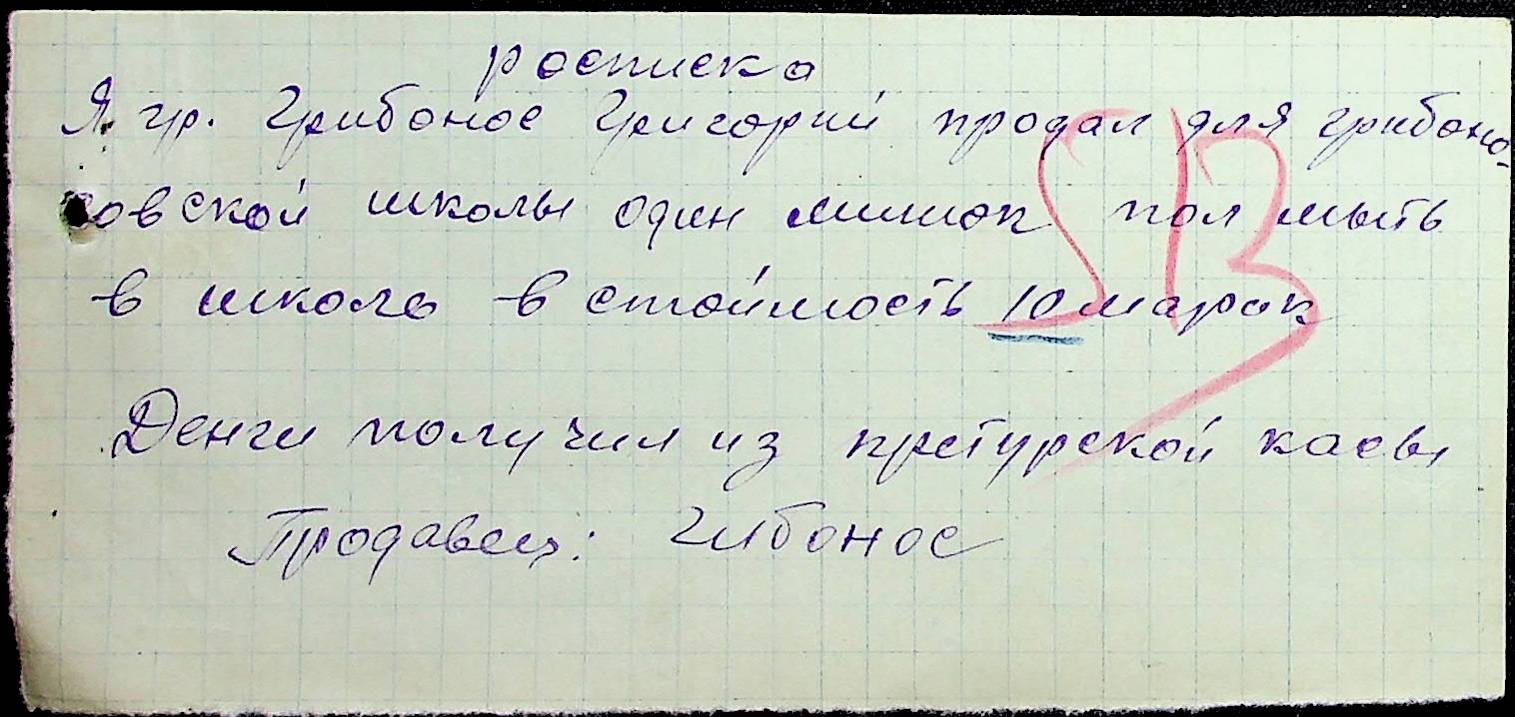 росписка
Я гр. Грибонос Григорий продал для грибоно-
совской школы один мишок пол мыть
в школе в стоймость 10 марок
Денги получил из претурской касы
Продавец: Гибонос